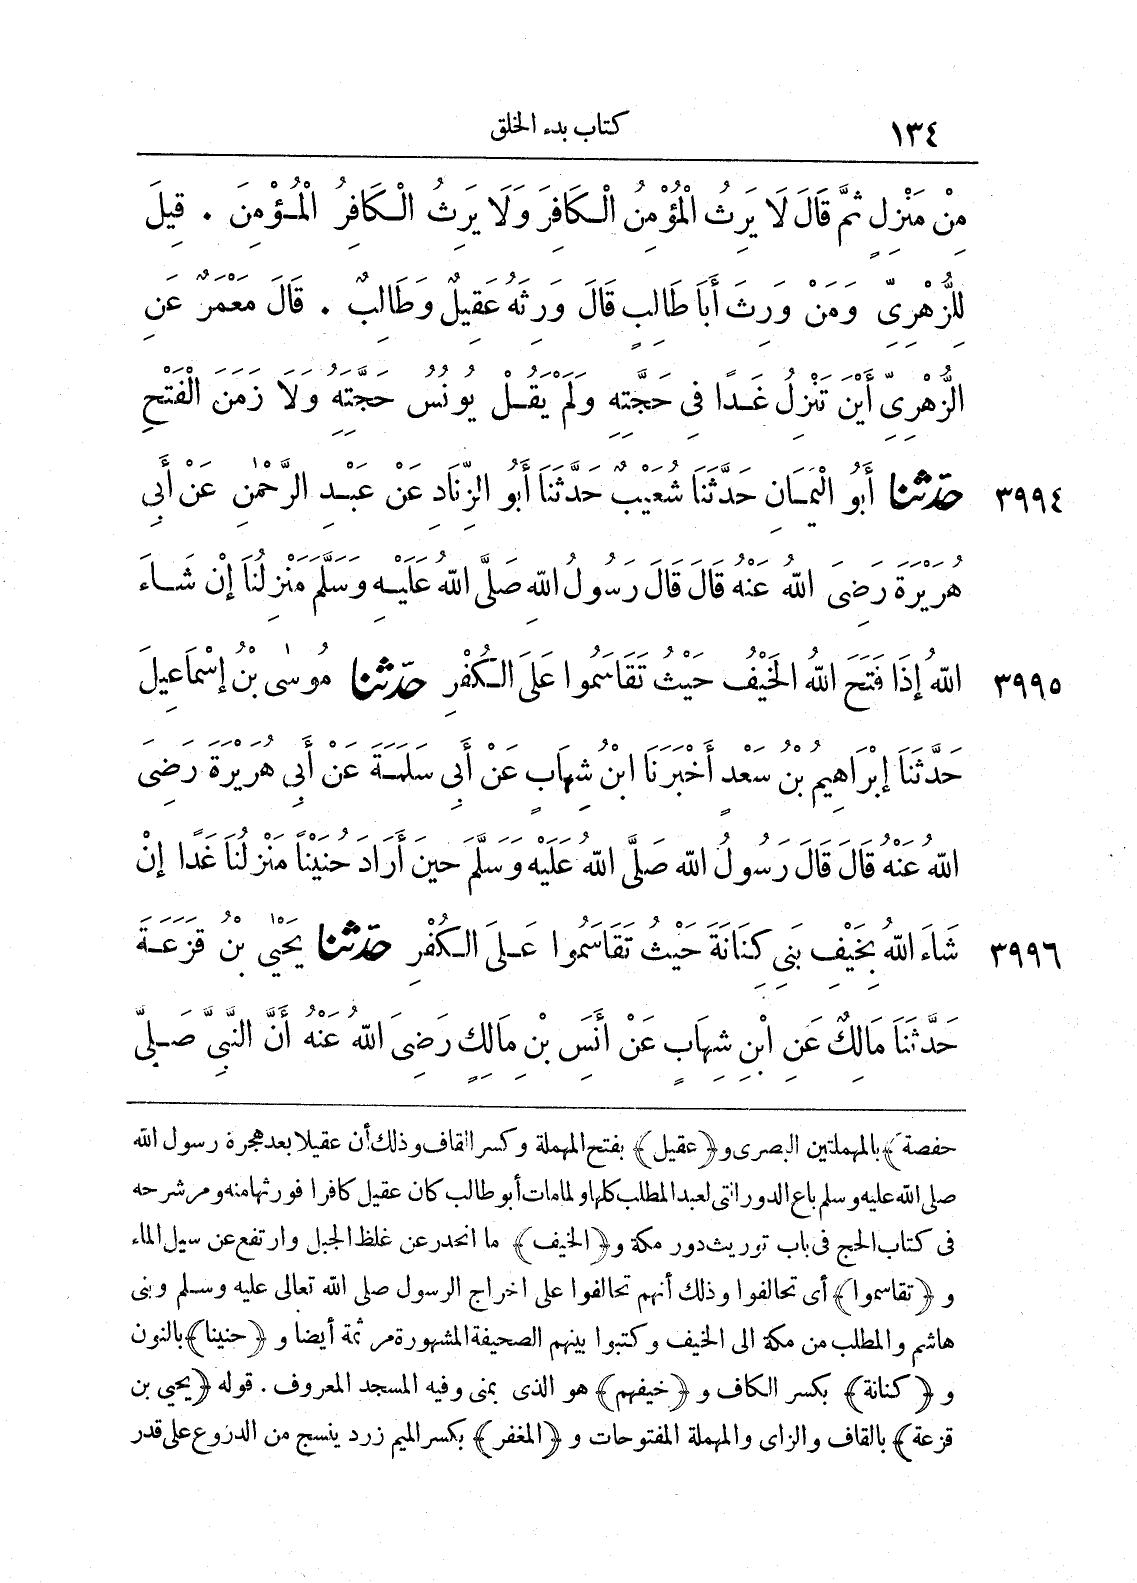 ١٣٤ كتاب بدء الخلق
مِنْ مَنْزِلٍ ثُمَّ قَالَ لَا يَرِثُ الْمُؤْمِنُ الْكَافِرَ وَلَا يَرِثُ الْكَافِرُ الْمُؤْمِنَ . قِيلَ
لِلزُّهْرِيِّ وَمَنْ وَرِثَ أَبَا طَالِبٍ قَالَ وَرِثَهُ عَقِيلٌ وَطَالِبٌ . قَالَ مَعْمَرٌ عَنِ
الزُّهْرِيِّ أَيْنَ تَنْزِلُ غَدًا فِى حَجَّتِهِ وَلَمْ يَقُلْ يُونُسُ حَجَّتِهِ وَلَا زَمَنَ الْفَتْحِ
٣٩٩٤ حدّثنا أَبُو الْيَمَانِ حَدَّثَنَا شُعَيْبٌ حَدَّثَنَا أَبُو الزِّنَادِ عَنْ عَبْدِ الرَّحْمٰنِ عَنْ أَبِى
هُرَيْرَةَ رَضِىَ اللهُ عَنْهُ قَالَ قَالَ رَسُولُ اللهِ صَلَّى اللهُ عَلَيْهِ وَسَلَّمَ مَنْزِلُنَا إِنْ شَاءَ
٣٩٩٥ اللهُ إِذَا فَتَحَ اللهُ الْخَيْفُ حَيْثُ تَقَاسَمُوا عَلَى الْكُفْرِ حدّثنا مُوسٰى بْنُ إِسْمَاعِيلَ
حَدَّثَنَا إِبْرَاهِيمُ بْنُ سَعْدٍ أَخْبَرَنَا ابْنُ شِهَابٍ عَنْ أَبِى سَلَمَةَ عَنْ أَبِى هُرَيْرَةَ رَضِىَ
اللهُ عَنْهُ قَالَ قَالَ رَسُولُ اللهِ صَلَّى اللهُ عَلَيْهِ وَسَلَّمَ حِينَ أَرَادَ حُنَيْنًا مَنْزِلُنَا غَدًا إِنْ
٣٩٩٦ شَاءَ اللهُ بِخَيْفِ بَنِى كِنَانَةَ حَيْثُ تَقَاسَمُوا عَلَى الْكُفْرِ حدّثنا يَحْيٰى بْنُ قَزَعَةَ
حَدَّثَنَا مَالِكٌ عَنِ ابْنِ شِهَابٍ عَنْ أَنَسِ بْنِ مَالِكٍ رَضِىَ اللهُ عَنْهُ أَنَّ النَّبِىَّ صَلَّى
حفصة﴾ بالمهملتين البصرى و﴿عقيل﴾ بفتح المهملة وكسر القاف وذلك أن عقيلا بعد هجرة رسول الله
صلى الله عليه وسلم باع الدور التى لعبد المطلب كلها ولما مات أبو طالب كان عقيل كافرا فورثها منه ومر شرحه
فى كتاب الحج فى باب توريث دور مكة و﴿الخيف﴾ ما انحدر عن غلظ الجبل وارتفع عن سيل الماء
و ﴿تقاسموا﴾ أى تحالفوا وذلك أنهم تحالفوا على اخراج الرسول صلى الله تعالى عليه وسلم وبنى
هاشم والمطلب من مكة الى الخيف وكتبوا بينهم الصحيفة المشهورة مر ثمة أيضا و ﴿حنينا﴾ بالنون
و ﴿كنانة﴾ بكسر الكاف و ﴿خيفهم﴾ هو الذى بمنى وفيه المسجد المعروف . قوله ﴿يحيى بن
قزعة﴾ بالقاف والزاى والمهملة المفتوحات و ﴿المغفر﴾ بكسر الميم زرد ينسج من الدروع على قدر